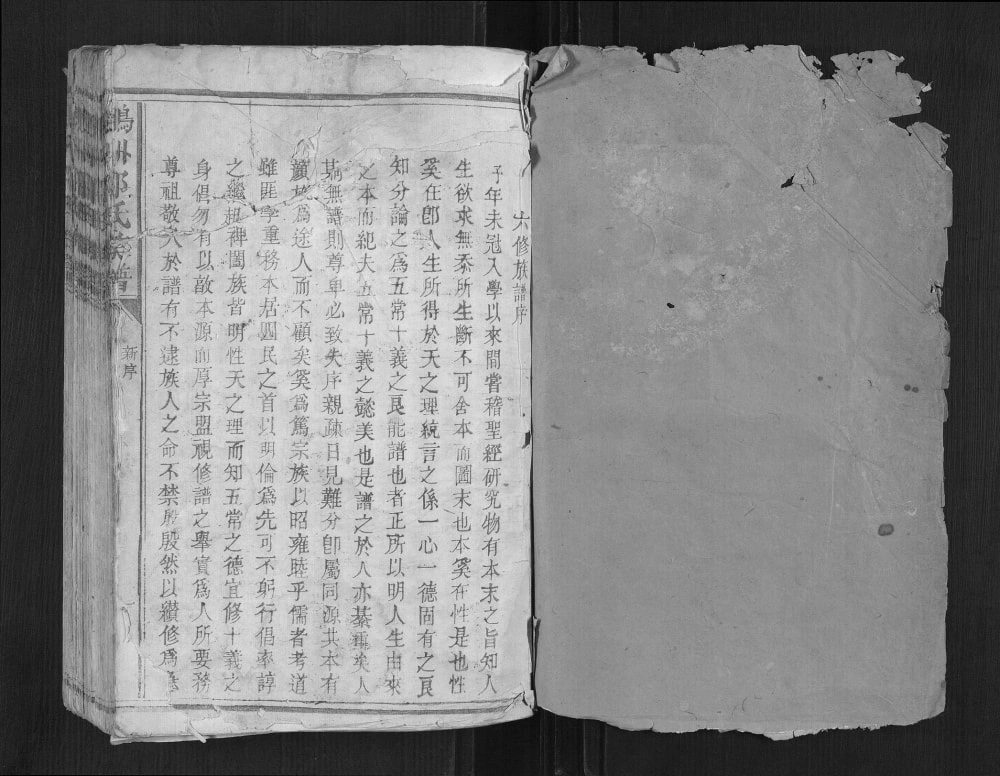 六修族譜序
予年未冠入學以來間嘗稽聖經研究物有本末之旨知人
生欲求無忝所生斷不可舍本而圖末也本奚在性是也性
奚在卽人生所得於天之理統言之係一心一德固有之良
知分論之爲五常十義之良能譜也者正所以明人生由來
之本而紀夫五常十義之懿美也是譜之於人亦綦重矣人
無譜則尊卑必致失序親疎日見難分卽屬同源共本有
族爲途人而不顧矣奚爲篤宗族以昭雍睦乎儒者考道
雖匪學重務本居四民之首以明倫爲先可不躬行倡率諄
之繼超裨闔族皆明性天之理而知五常之德宜修十義之
身倡勿有以啟本源而厚宗盟視修譜之舉實爲人所要務
尊祖敬宗於譜有不逮族人之命不禁殷殷然以纘修爲
氏族譜
新序